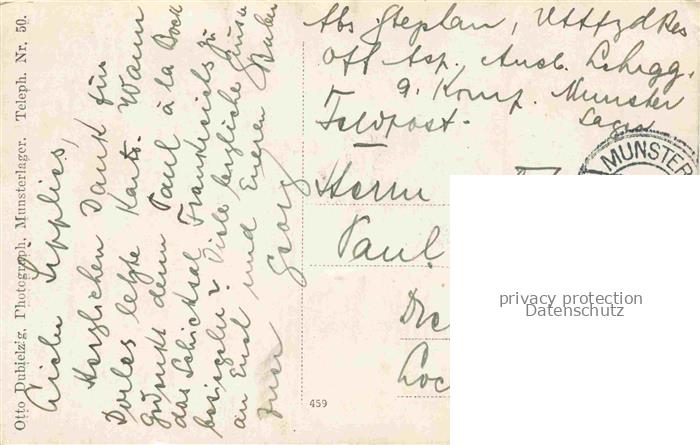 Otto Dubielzig, Photograph, Munsterlager. Teleph. Nr. 50.
Liebe Lipplies,
Herzlichen Dank für
Dorles letzte Karte. Wann
gedenkt denn Paul à la Bock
das Schicksal Frankreichs zu
besiegeln? Viele herzliche Grüsse
an Euch und Eueren Buben
Euer Georg
Abs Stephan, Uffz
Off Asp. Ausb. Lehrg.
9. Komp. Munster
Lager
Feldpost.
MUNSTER
Herrn
Paul
Dre
Loc
459
privacy protection
Datenschutz